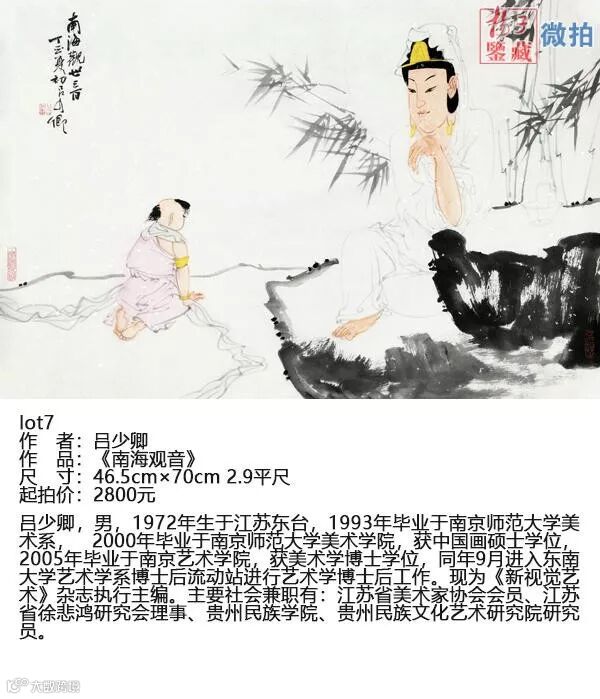 南海觀世音
丁亥夏初吕少卿
子
藏
鑒
微拍
lot7
作 者：吕少卿
作 品：《南海观音》
尺 寸：46.5cm×70cm 2.9平尺
起拍价：2800元
吕少卿，男，1972年生于江苏东台，1993年毕业于南京师范大学美
术系， 2000年毕业于南京师范大学美术学院，获中国画硕士学位，
2005年毕业于南京艺术学院，获美术学博士学位，同年9月进入东南
大学艺术学系博士后流动站进行艺术学博士后工作。现为《新视觉艺
术》杂志执行主编。主要社会兼职有：江苏省美术家协会会员、江苏
省徐悲鸿研究会理事、贵州民族学院、贵州民族文化艺术研究院研究
员。
大数跨境